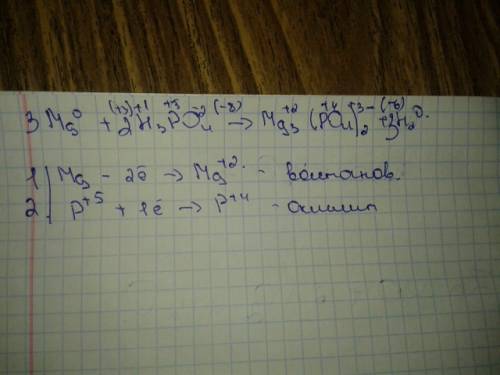 3 Mg⁰ + 2H₃⁽⁺³⁾⁺¹P⁺⁵O₄⁻²⁽⁻⁸⁾ → Mg₃⁺²(P⁺⁴O₄)₂ + 3H₂⁰
1 | Mg - 2ē → Mg⁺² - восстанов.
2. | P⁺⁵ + 1ē → P⁺⁴ -